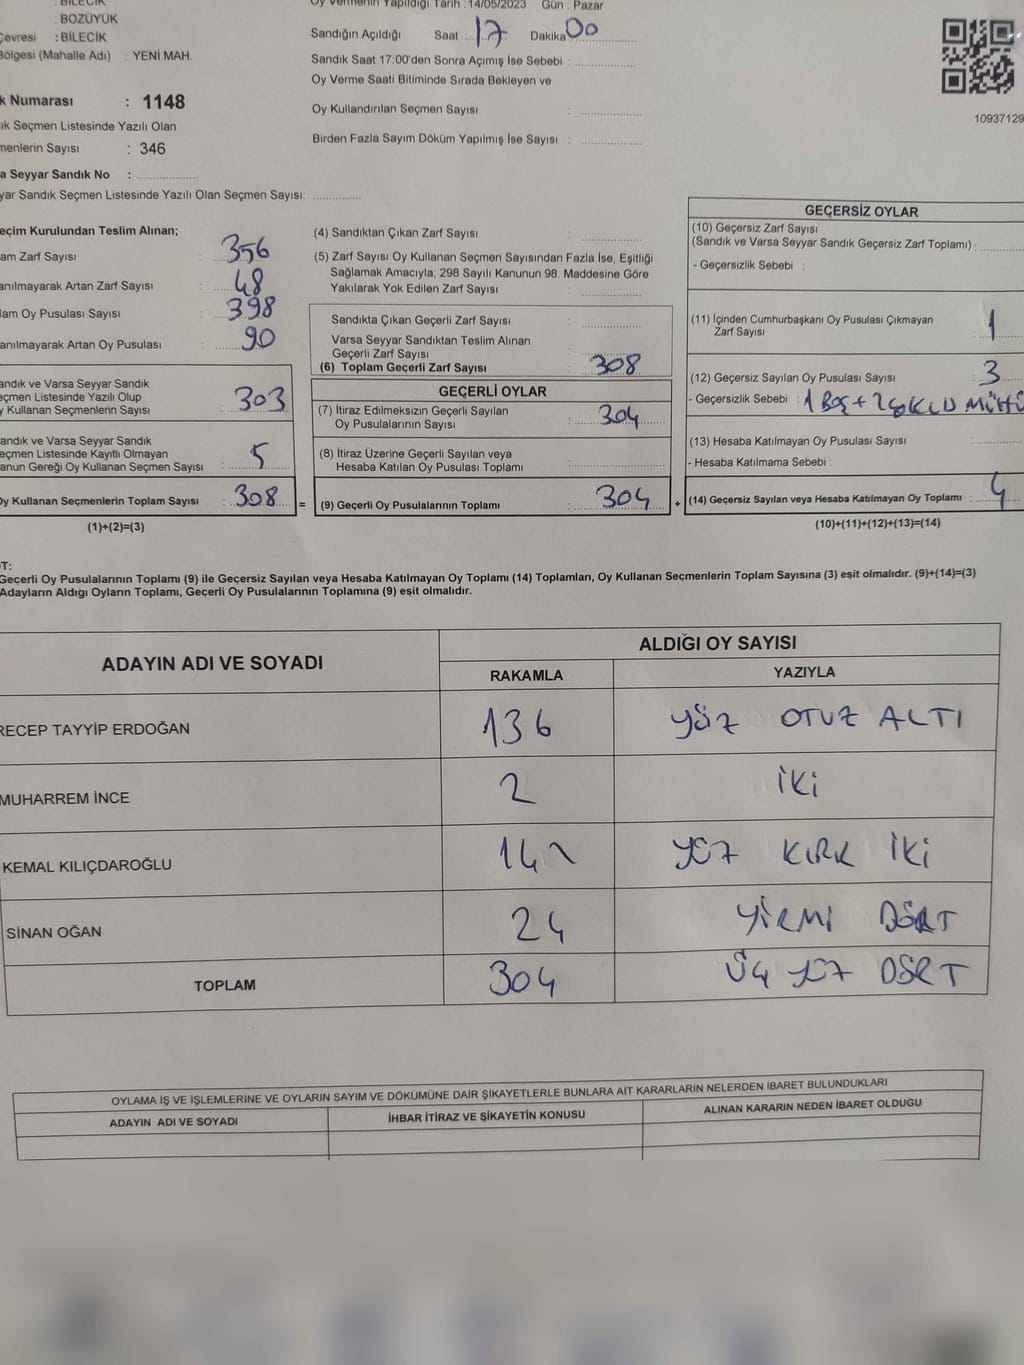 : BİLECİK
: BOZÜYÜK
: BİLECİK
Bölgesi (Mahalle Adı) : YENİ MAH.
Numarası : 1148
Seçmen Listesinde Yazılı Olan
Sayısı : 346
Seyyar Sandık No : ..................
Sandık Seçmen Listesinde Yazılı Olan Seçmen Sayısı: ..............
Oy Vermenin Yapıldığı Tarih : 14/05/2023 Gün : Pazar
Sandığın Açıldığı Saat : 17 Dakika 00
Sandık Saat 17:00'den Sonra Açımış İse Sebebi : ..................
Oy Verme Saati Bitiminde Sırada Bekleyen ve
Oy Kullandırılan Seçmen Sayısı : ..................
Birden Fazla Sayım Döküm Yapılmış İse Sayısı : ..................
10937129
Kurulundan Teslim Alınan;
Zarf Sayısı : 356
Artan Zarf Sayısı : 48
Oy Pusulası Sayısı : 398
Artan Oy Pusulası : 90
ve Varsa Seyyar Sandık
Listesinde Yazılı Olup
Kullanan Seçmenlerin Sayısı : 303
ve Varsa Seyyar Sandık
Listesinde Kayıtlı Olmayan
Gereği Oy Kullanan Seçmen Sayısı : 5
Oy Kullanan Seçmenlerin Toplam Sayısı : 308 =
(1)+(2)=(3)
(4) Sandıktan Çıkan Zarf Sayısı : ..................
(5) Zarf Sayısı Oy Kullanan Seçmen Sayısından Fazla İse, Eşitliği
Sağlamak Amacıyla; 298 Sayılı Kanunun 98. Maddesine Göre
Yakılarak Yok Edilen Zarf Sayısı : ..................
Sandıkta Çıkan Geçerli Zarf Sayısı : ..................
Varsa Seyyar Sandıktan Teslim Alınan
Geçerli Zarf Sayısı : ..................
(6) Toplam Geçerli Zarf Sayısı : 308
GEÇERLİ OYLAR
(7) İtiraz Edilmeksizin Geçerli Sayılan
Oy Pusulalarının Sayısı : 304
(8) İtiraz Üzerine Geçerli Sayılan veya
Hesaba Katılan Oy Pusulası Toplamı : ..................
(9) Geçerli Oy Pusulalarının Toplamı : 304 +
GEÇERSİZ OYLAR
(10) Geçersiz Zarf Sayısı
(Sandık ve Varsa Seyyar Sandık Geçersiz Zarf Toplamı) : ..........
- Geçersizlik Sebebi :
(11) İçinden Cumhurbaşkanı Oy Pusulası Çıkmayan
Zarf Sayısı : 1
(12) Geçersiz Sayılan Oy Pusulası Sayısı : 3
- Geçersizlik Sebebi : 1 BOŞ + 2
(13) Hesaba Katılmayan Oy Pusulası Sayısı : ..........
- Hesaba Katılmama Sebebi :
(14) Geçersiz Sayılan veya Hesaba Katılmayan Oy Toplamı : 4
(10)+(11)+(12)+(13)=(14)
Geçerli Oy Pusulalarının Toplamı (9) ile Geçersiz Sayılan veya Hesaba Katılmayan Oy Toplamı (14) Toplamları, Oy Kullanan Seçmenlerin Toplam Sayısına (3) eşit olmalıdır. (9)+(14)=(3)
Adayların Aldığı Oyların Toplamı, Geçerli Oy Pusulalarının Toplamına (9) eşit olmalıdır.
ADAYIN ADI VE SOYADI ALDIĞI OY SAYISI
RAKAMLA YAZIYLA
RECEP TAYYİP ERDOĞAN 136 YÜZ OTUZ ALTI
MUHARREM İNCE 2 İKİ
KEMAL KILIÇDAROĞLU 142 YÜZ KIRK İKİ
SİNAN OĞAN 24 YİRMİ DÖRT
TOPLAM 304 ÜÇ YÜZ DÖRT
OYLAMA İŞ VE İŞLEMLERİNE VE OYLARIN SAYIM VE DÖKÜMÜNE DAİR ŞİKAYETLERLE BUNLARA AİT KARARLARIN NELERDEN İBARET BULUNDUKLARI
ADAYIN ADI VE SOYADI İHBAR İTİRAZ VE ŞİKAYETİN KONUSU ALINAN KARARIN NEDEN İBARET OLDUĞU